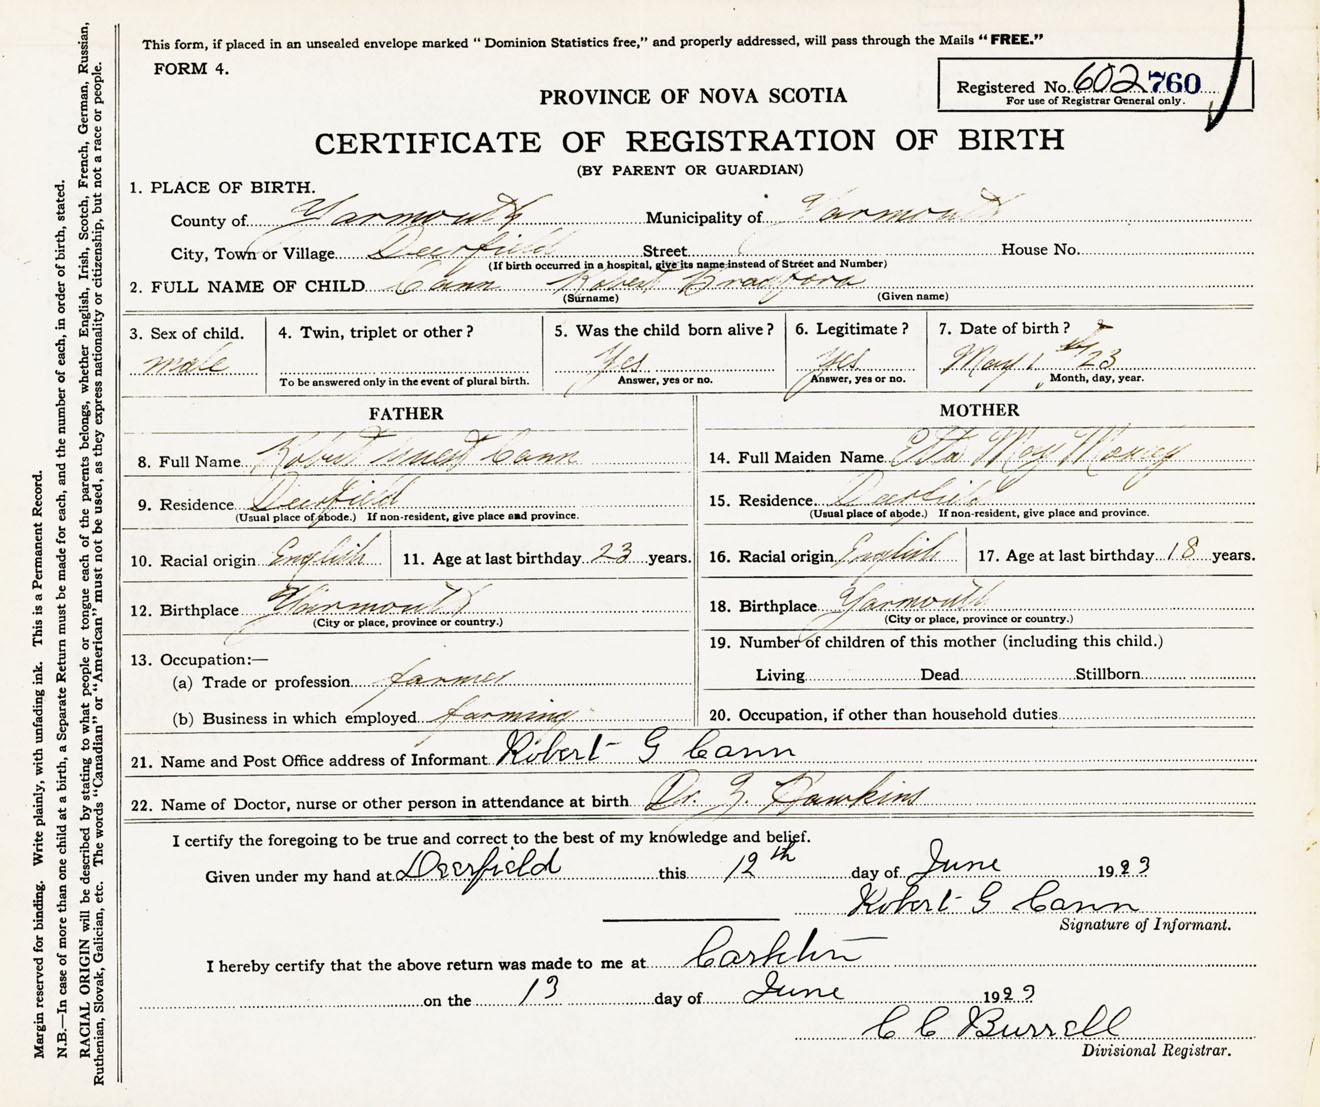 This form, if placed in an unsealed envelope marked “ Dominion Statistics free,” and properly addressed, will pass through the Mails “ FREE.”
FORM 4.
Registered No. 602760
For use of Registrar General only.
PROVINCE OF NOVA SCOTIA
CERTIFICATE OF REGISTRATION OF BIRTH
(BY PARENT OR GUARDIAN)
1. PLACE OF BIRTH.
County of Yarmouth Municipality of Yarmouth
City, Town or Village Deerfield Street House No.
(If birth occurred in a hospital, give its name instead of Street and Number)
2. FULL NAME OF CHILD Cann Robert Bradford
(Surname) (Given name)
3. Sex of child. 4. Twin, triplet or other? 5. Was the child born alive? 6. Legitimate? 7. Date of birth?
male Yes Yes May 1 23
To be answered only in the event of plural birth. Answer, yes or no. Answer, yes or no. Month, day, year.
FATHER
8. Full Name Robert Cann
9. Residence Deerfield
(Usual place of abode.) If non-resident, give place and province.
10. Racial origin English 11. Age at last birthday 23 years.
12. Birthplace Yarmouth
(City or place, province or country.)
13. Occupation:—
(a) Trade or profession farmer
(b) Business in which employed farming
MOTHER
14. Full Maiden Name Etta May
15. Residence Deerfield
(Usual place of abode.) If non-resident, give place and province.
16. Racial origin English 17. Age at last birthday 18 years.
18. Birthplace Yarmouth
(City or place, province or country.)
19. Number of children of this mother (including this child.)
Living Dead Stillborn
20. Occupation, if other than household duties
21. Name and Post Office address of Informant Robert G Cann
22. Name of Doctor, nurse or other person in attendance at birth Dr. Z. Hawkins
I certify the foregoing to be true and correct to the best of my knowledge and belief.
Given under my hand at Deerfield this 12th day of June 1923
Robert G Cann
Signature of Informant.
I hereby certify that the above return was made to me at Carleton
on the 13 day of June 1923
C C Burrell
Divisional Registrar.
Margin reserved for binding. Write plainly, with unfading ink. This is a Permanent Record.
N.B.—In case of more than one child at a birth, a Separate Return must be made for each, and the number of each, in order of birth, stated.
RACIAL ORIGIN will be described by stating to what people or tongue each of the parents belongs, whether English, Irish, Scotch, French, German, Russian,
Ruthenian, Slovak, Galician, etc. The words “Canadian” or “American” must not be used, as they express nationality or citizenship, but not a race or people.